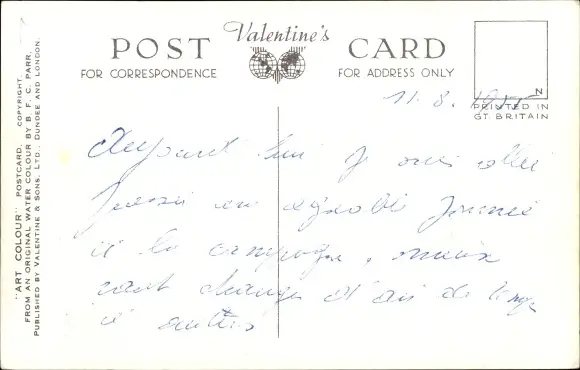 Valentine's
POST CARD
FOR CORRESPONDENCE
FOR ADDRESS ONLY
N
PRINTED IN
GT BRITAIN
11.8.1955
je suis allé
passer une agréable journée
à la campagne, mieux
vaut changer d'air de temps
à autres
"ART COLOUR" POSTCARD. COPYRIGHT.
FROM AN ORIGINAL WATER COLOUR BY B. F. C. PARR.
PUBLISHED BY VALENTINE & SONS, LTD. DUNDEE AND LONDON.